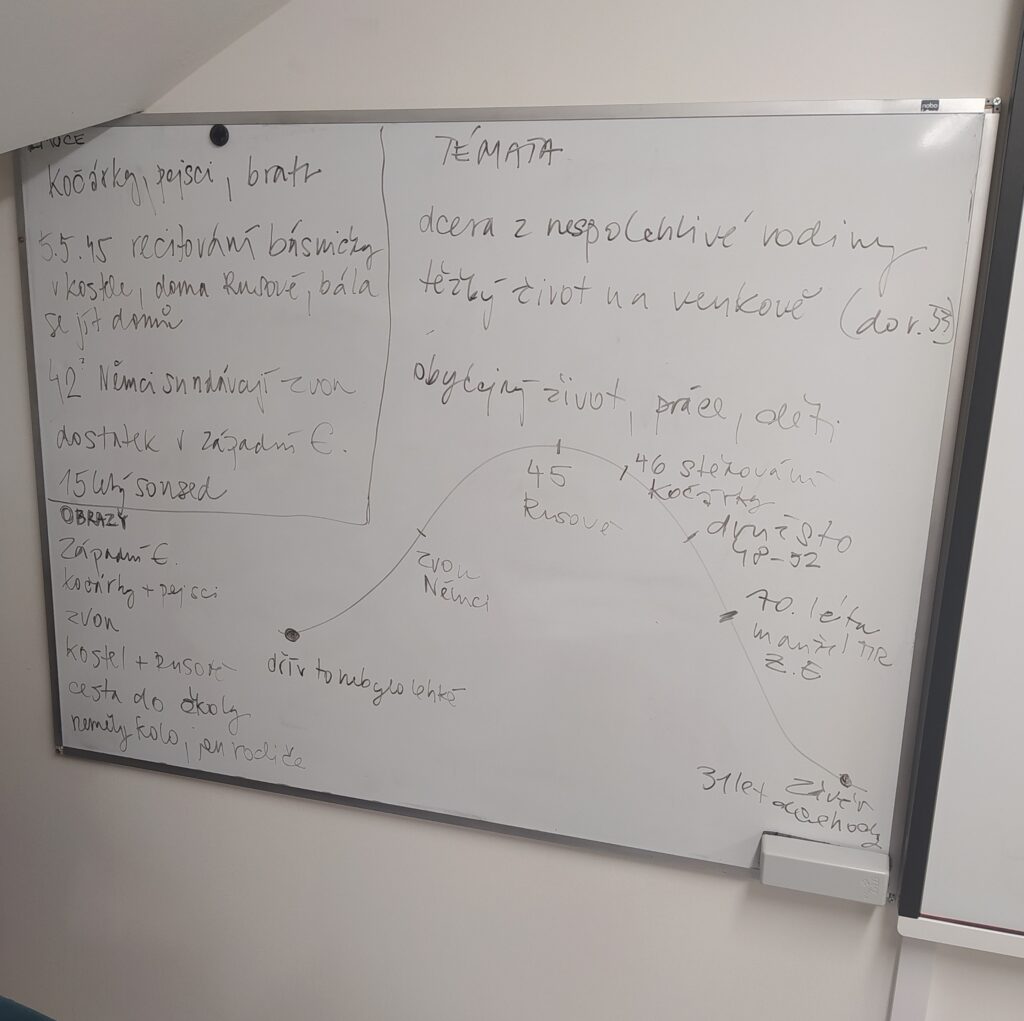 kočárky, pejsci, bratr
5.5.45 recitování básničky
v kostele, doma Rusové, bála
se jít domů
42 Němci sundávají zvon
dostatek v západní E.
15letý soused
OBRAZY
Západní E.
kočárky + pejsci
zvon
kostel + Rusové
cesta do školy
neměly kolo, jen rodiče
TÉMATA
dcera z nespolehlivé rodiny
těžký život na venkově (do r. 53)
obyčejný život, práce, děti
dřív to nebylo lehké
zvon
Němci
45
Rusové
46 stěhování
kočárky
družsto
48-52
70. léta
manžel TIR
Z.E
31 let
závěr